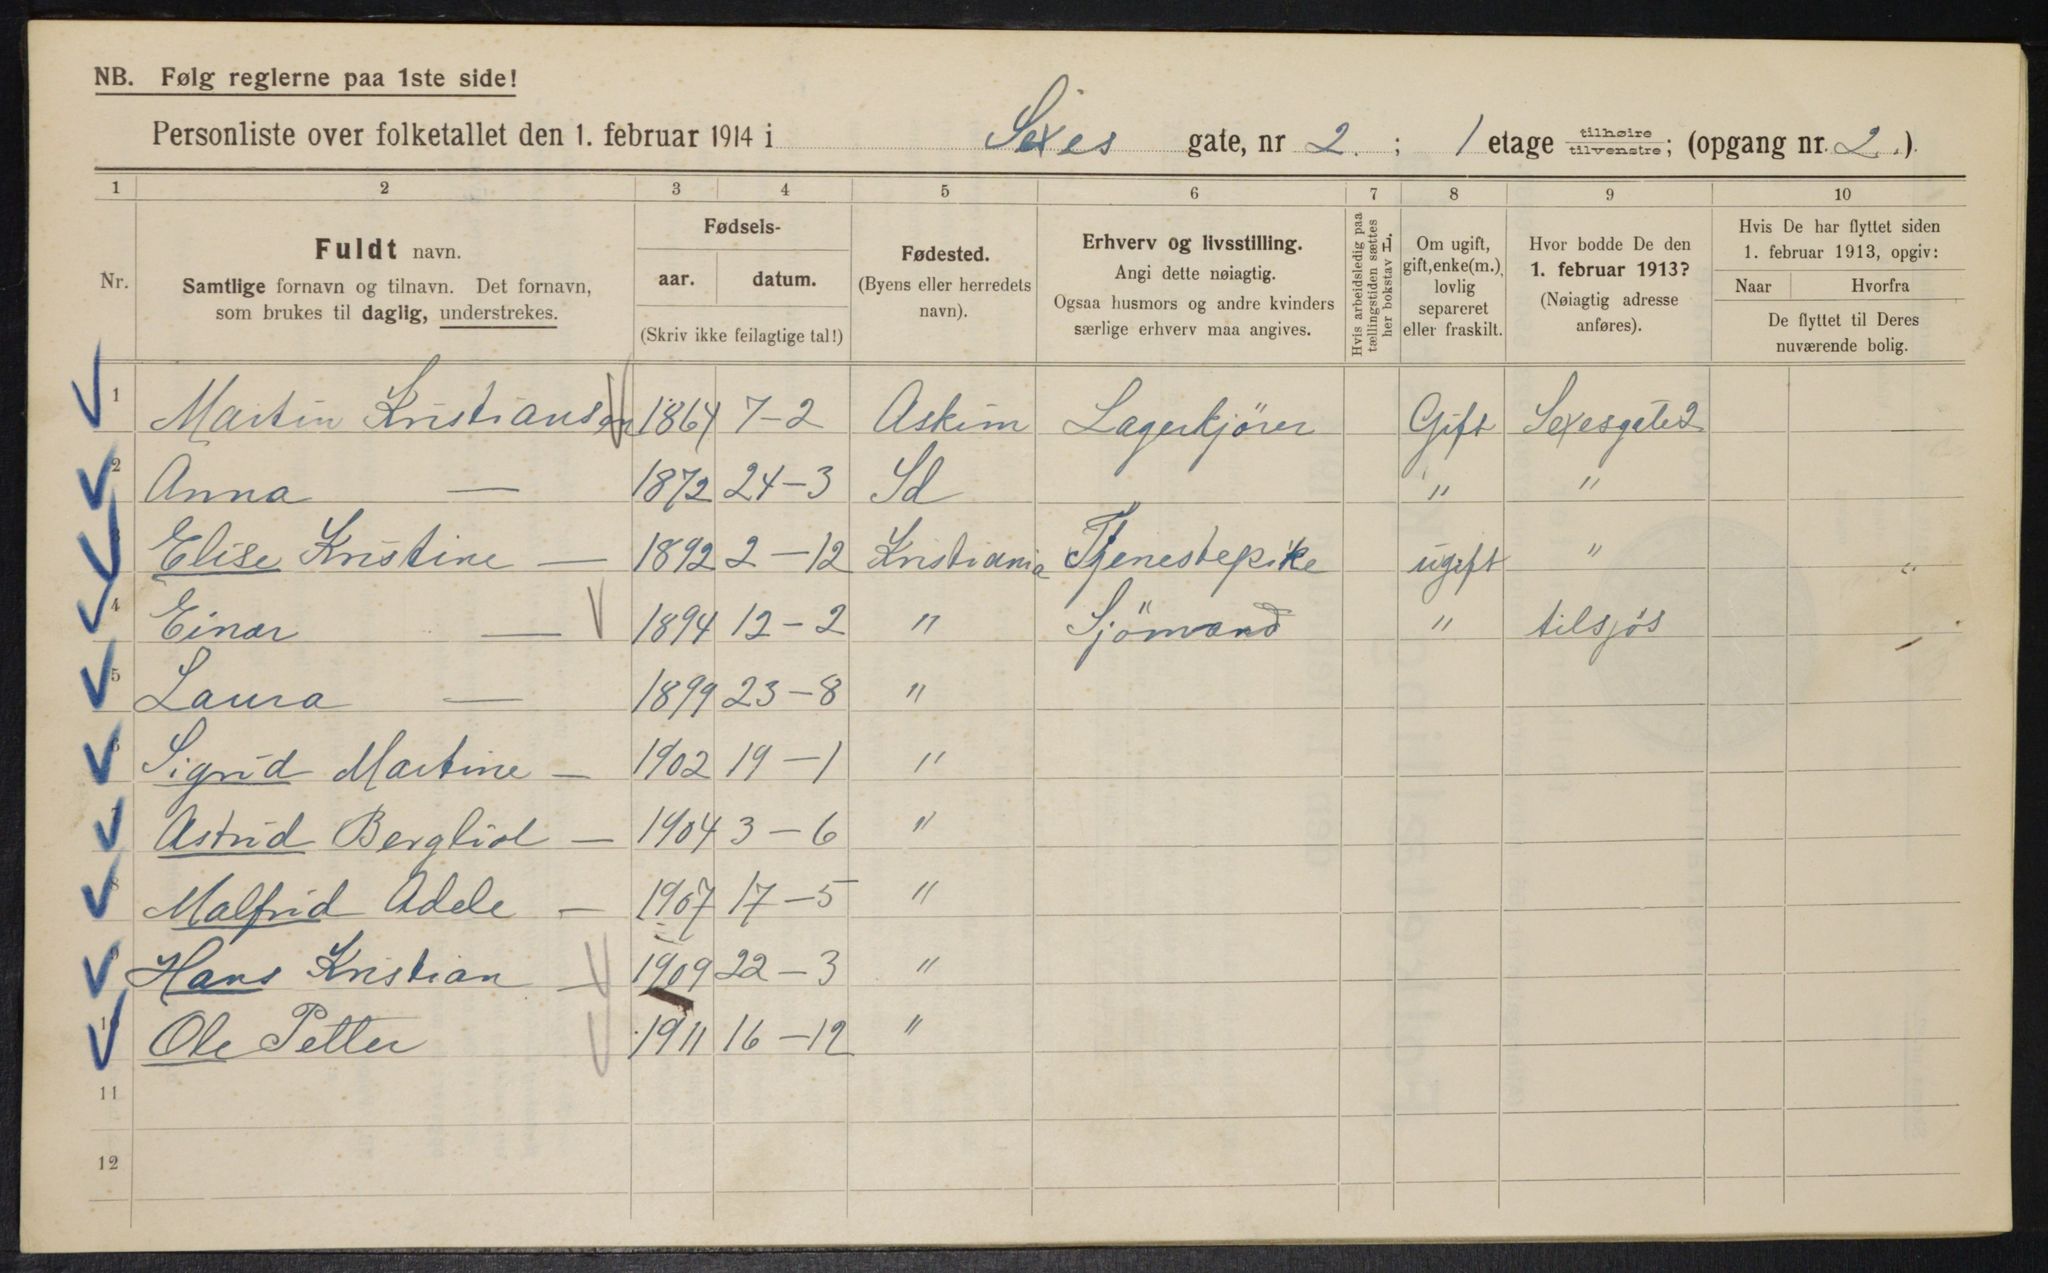 NB. Følg reglerne paa 1ste side!
Personliste over folketallet den 1. februar 1914 i Sexes gate, nr 2. ; 1 etage tilhøire tilvenstre; (opgang nr. 2.).
1 2 3 4 5 6 7 8 9 10
Nr. Fuldt navn. Samtlige fornavn og tilnavn. Det fornavn, som brukes til daglig, understrekes.
Fødsels- aar. datum. (Skriv ikke feilagtige tal!)
Fødested. (Byens eller herredets navn).
Erhverv og livsstilling. Angi dette nøiagtig. Ogsaa husmors og andre kvinders særlige erhverv maa angives.
Hvis arbeidsledig paa tællingstiden sættes her bokstav L.
Om ugift, gift, enke(m.), lovlig separeret eller fraskilt.
Hvor bodde De den 1. februar 1913? (Nøiagtig adresse anføres).
Hvis De har flyttet siden 1. februar 1913, opgiv: Naar Hvorfra De flyttet til Deres nuværende bolig.
1 Martin Kristiansen 1864 7-2 Askim Lagerkjører Gift Sexesgate 2
2 Anna — 1872 24-3 Sd " "
3 Elise Kristine — 1892 2-12 Kristiania Tjenestepike ugift " "
4 Einar — 1894 12-2 " Sjömand " tilsjøs
5 Laura — 1899 23-8 "
6 Sigrid Martine — 1902 19-1 "
7 Astrid Bergliot — 1904 3-6 "
8 Malfrid Adele — 1907 17-5 "
9 Hans Kristian — 1909 22-3 "
10 Ole Petter 1911 16-12 "
11
12